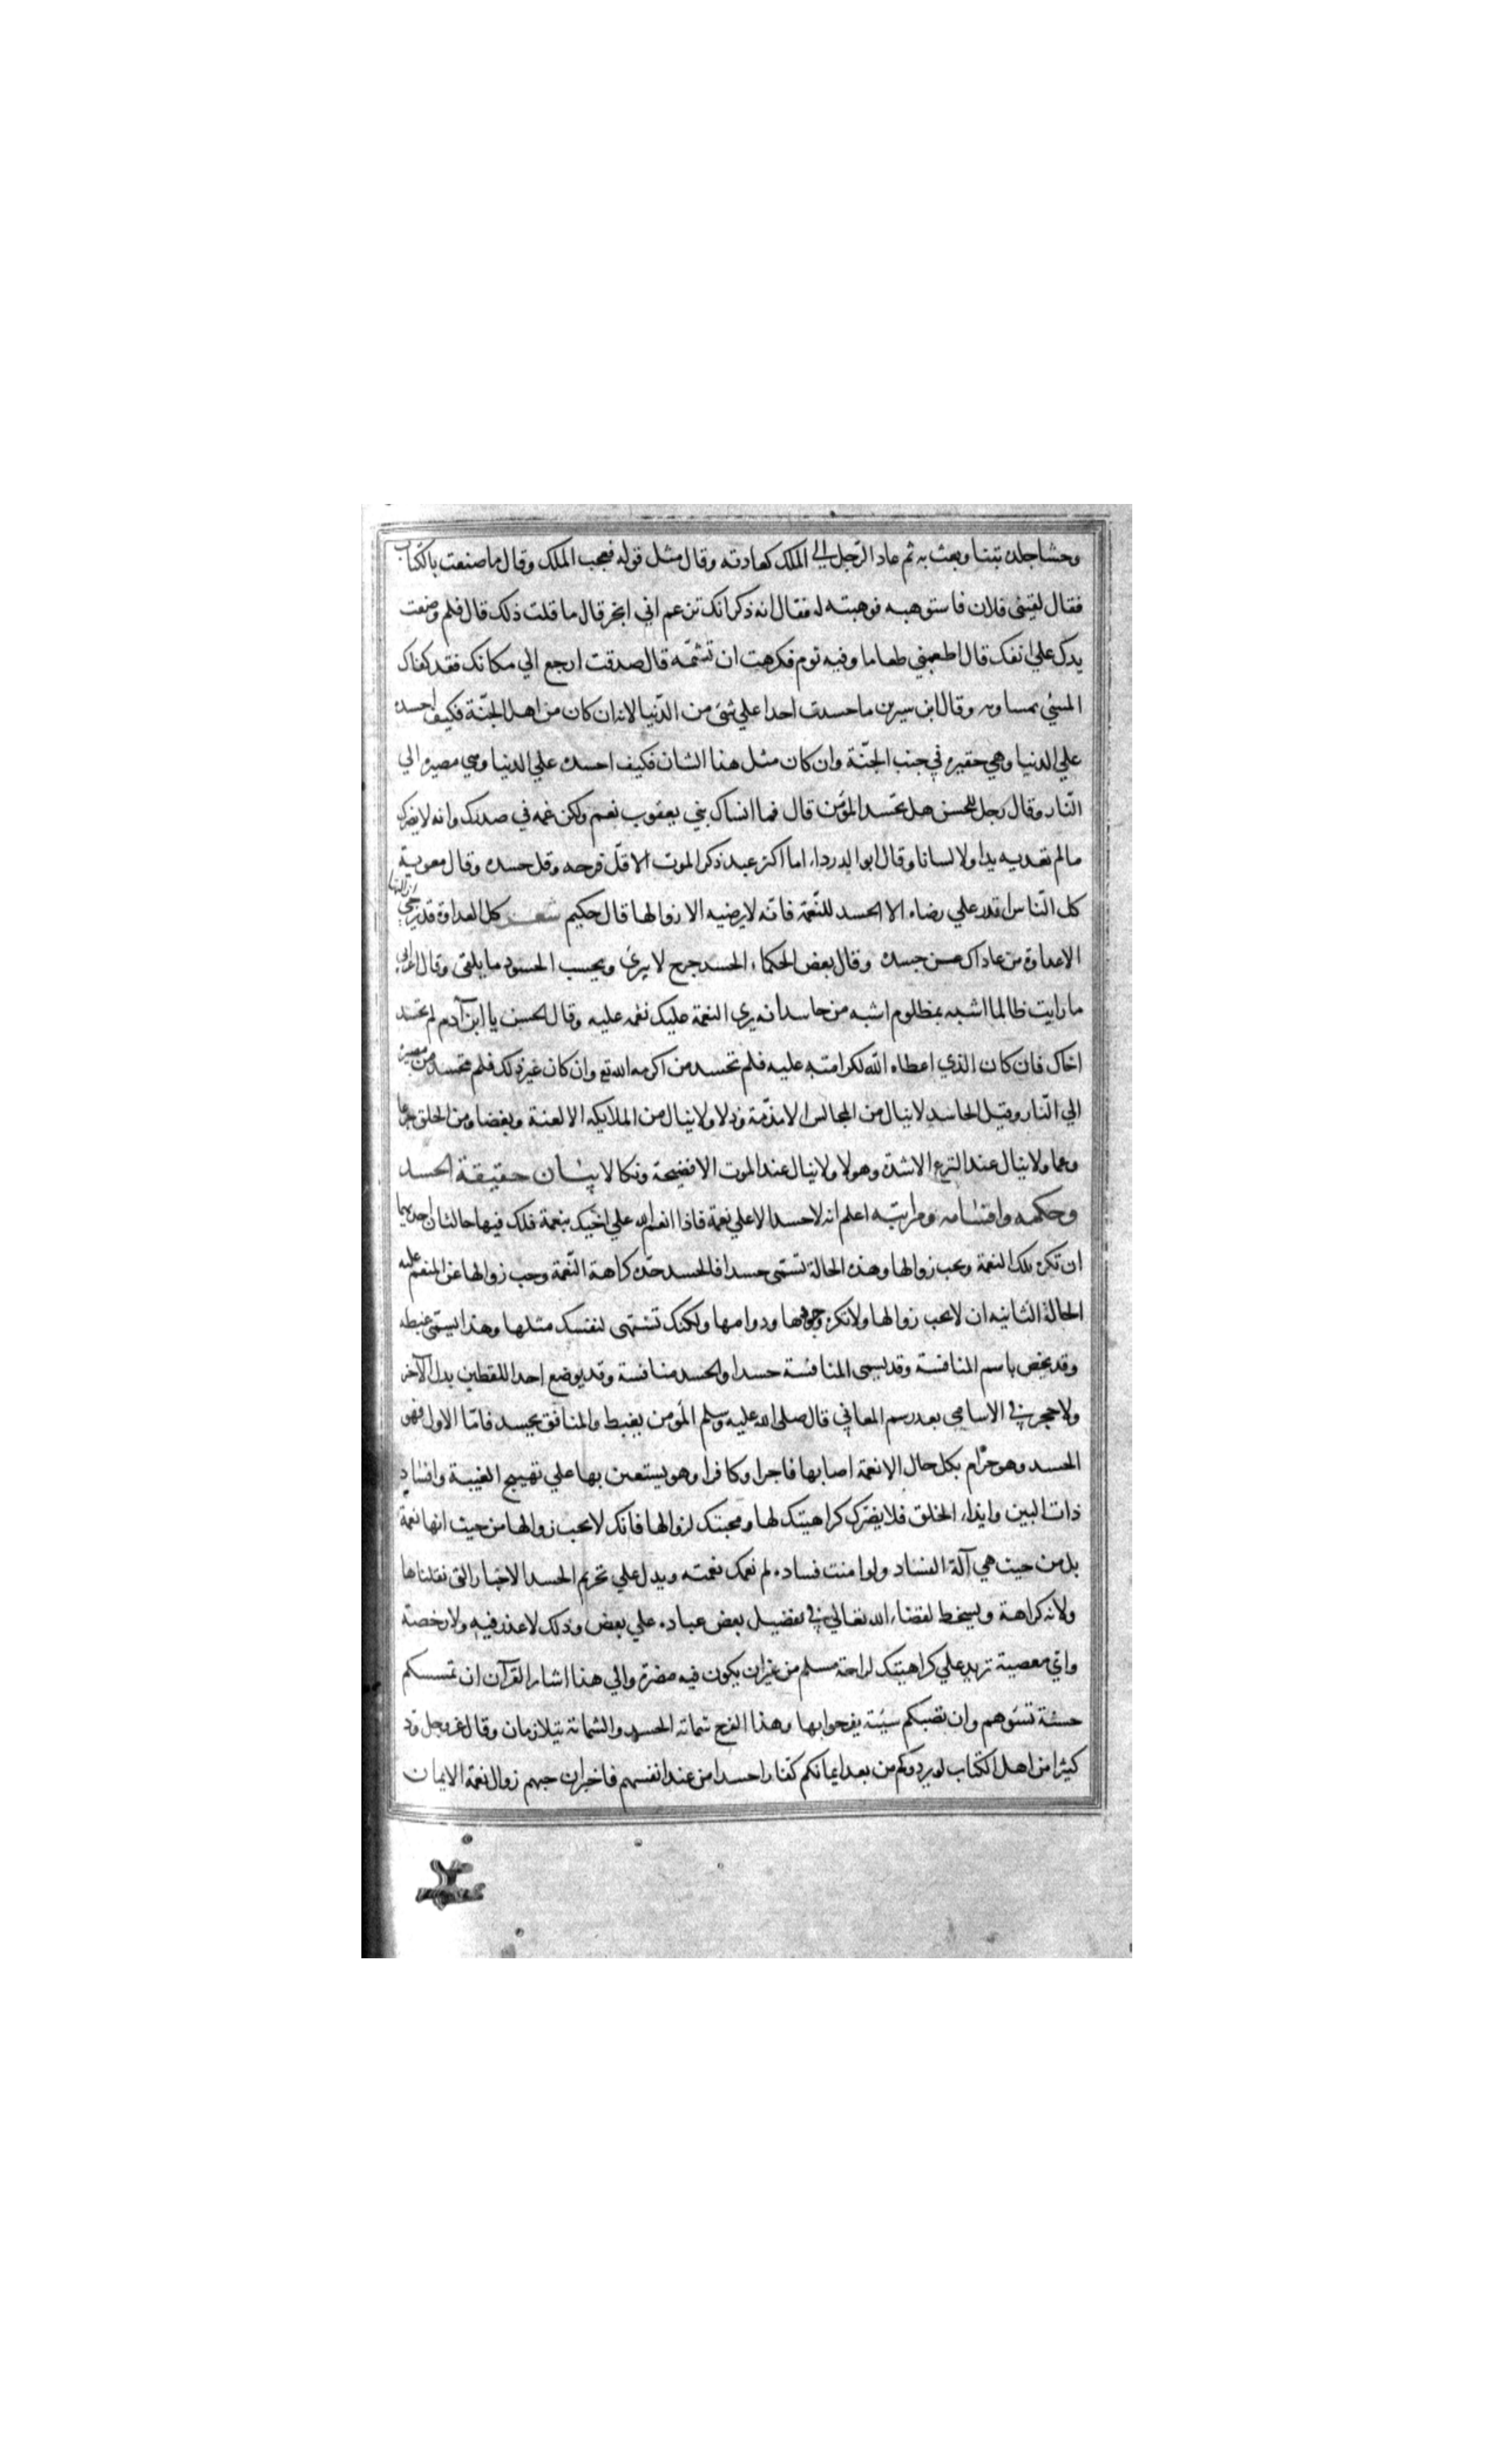 وحشا جلده تبنا وبعث به ثم عاد الرّجل الي الملك كعادته وقال مثل قوله فعجب الملك وقال ما صنعت بالكتاب
فقال لقيني فلان فاستوهبه فوهبته له فقال انه ذكر انك تزعم اني ابخر قال ما قلت ذلك قال فلم وضعت
يدك علي انفك قال اطعمني طعاما وفيه ثوم فكرهت ان تشمّه قال صدقت ارجع الي مكانك فقد كفاك
المسئ مساويه وقال ابن سيرين ما حسدت احدا علي شئ من الدّنيا لانه ان كان من اهل الجنّة فكيف احسده
علي الدنيا وهي حقيره في جنب الجنّة وان كان مثل هذا الشان فكيف احسده علي الدنيا وهي مصيره الي
النّار وقال رجل للحسن هل يحسد المؤمن قال فما انساك بني يعقوب نعم ولكن غمه في صدرك وانه لا يضرك
ما لم تعد به يدا ولا لسانا وقال ابو الدرداء اما اكثر عبد ذكر الموت الا قلّ فرحه وقل حسده وقال معوية
كل النّاس اقدر علي رضاه الا الحسد للنّعمة فانّه لا يرضيه الا زوالها قال حكيم شعر كل العداوة قد يرجي ازالتها
الاعداوة من عاداك من حسد وقال بعض الحكماء الحسد جرح لا يبرئ ويحسب الحسود ما يلقي وقال اعرابي
ما رايت ظالما اشبه بمظلوم اشبه من حاسد انه يري النعمة عليك نقمه عليه وقال الحسن يا ابن آدم لم تحسد
اخاك فان كان الذي اعطاه الله لكرامته عليه فلم تحسد من اكرمه الله تع وان كان غير ذلك فلم تحسد من مصيره
الي النّار وقيل الحاسد لا ينال من المجالس الا مذمّة وذلا ولا ينال من الملايكه الا لعنة وبغضا ومن الخلق جزعا
وغما ولا ينال عند النزع الا شدة وهولا ولا ينال عند الموت الا فضيحة ونكالا بيان حقيقة الحسد
وحكمه واقسامه ومراتبه اعلم انه لا حسد الا علي نعمة فاذا انعم الله علي اخيك بنعمة فلك فيها حالتان احديهما
ان تكره تلك النعمة وتحب زوالها وهذه الحالة تسمّي حسدا فالحسد حدّه كراهة النّعمة وحب زوالها عن المنعم عليه
الحالة الثانيه ان لا تحب زوالها ولا تكره وجودها ودوامها ولكنك تشتهي لنفسك مثلها وهذا يسمّي غبطه
وقد يخص باسم المنافسة وقد يسمي المنافسة حسدا والحسد منافسة وقد يوضع احد اللفظين بدل الآخر
ولا حجر في الاسامي بعد رسم المعاني قال صلي الله عليه وسلم المؤمن يغبط والمنافق يحسد فامّا الاول فهو
الحسد وهو حرام بكل حال الا نعمة اصابها فاجرا وكافرا وهو يستعين بها علي تهييج الغيبة وافساد
ذات البين وايذاء الخلق فلا يضرك كراهيتك لها ومحبتك لزوالها فانك لا تحب زوالها من حيث انها نعمة
بل من حيث هي آلة الفساد ولو امنت فساده لم نغمك نعمته ويدل علي تحريم الحسد الاخبار التي نقلناها
ولانه كراهة ويسخط لقضاء الله تعالي في تفضيل بعض عباده علي بعض وذلك لا عذر فيه ولا رخصة
واي معصية تزيد علي كراهيتك لراحة مسلم من غير ان يكون فيه مضرة والي هذا اشار القرآن ان تمسسكم
حسنة تسؤهم وان تصبكم سيّئة يفرحوا بها وهذا الفرح شماتة الحسد والشماتة يتلازمان وقال عز وجل ود
كثير من اهل الكتاب لو يردونكم من بعد ايمانكم كفارا حسدا من عند انفسهم فاخبر ان حبهم زوال نعمة الايمان